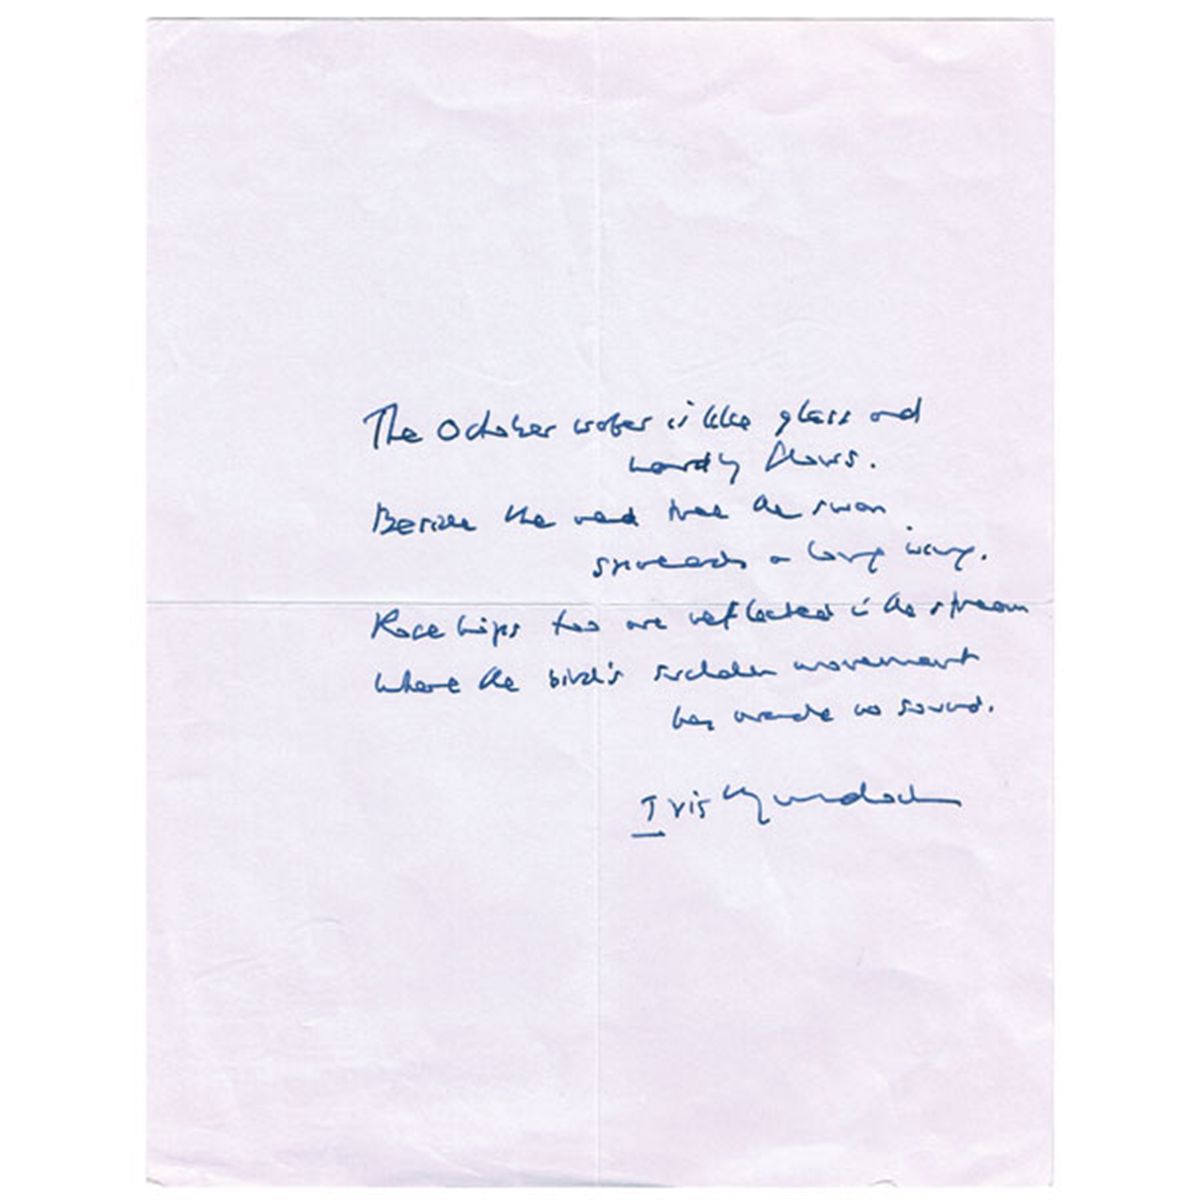 The October water is like glass and
hardly flows.
Beside the red tree the swan
spreads a long wing.
Rose hips too are reflected in the stream
where the bird's sudden movement
has made no sound.
Iris Murdoch